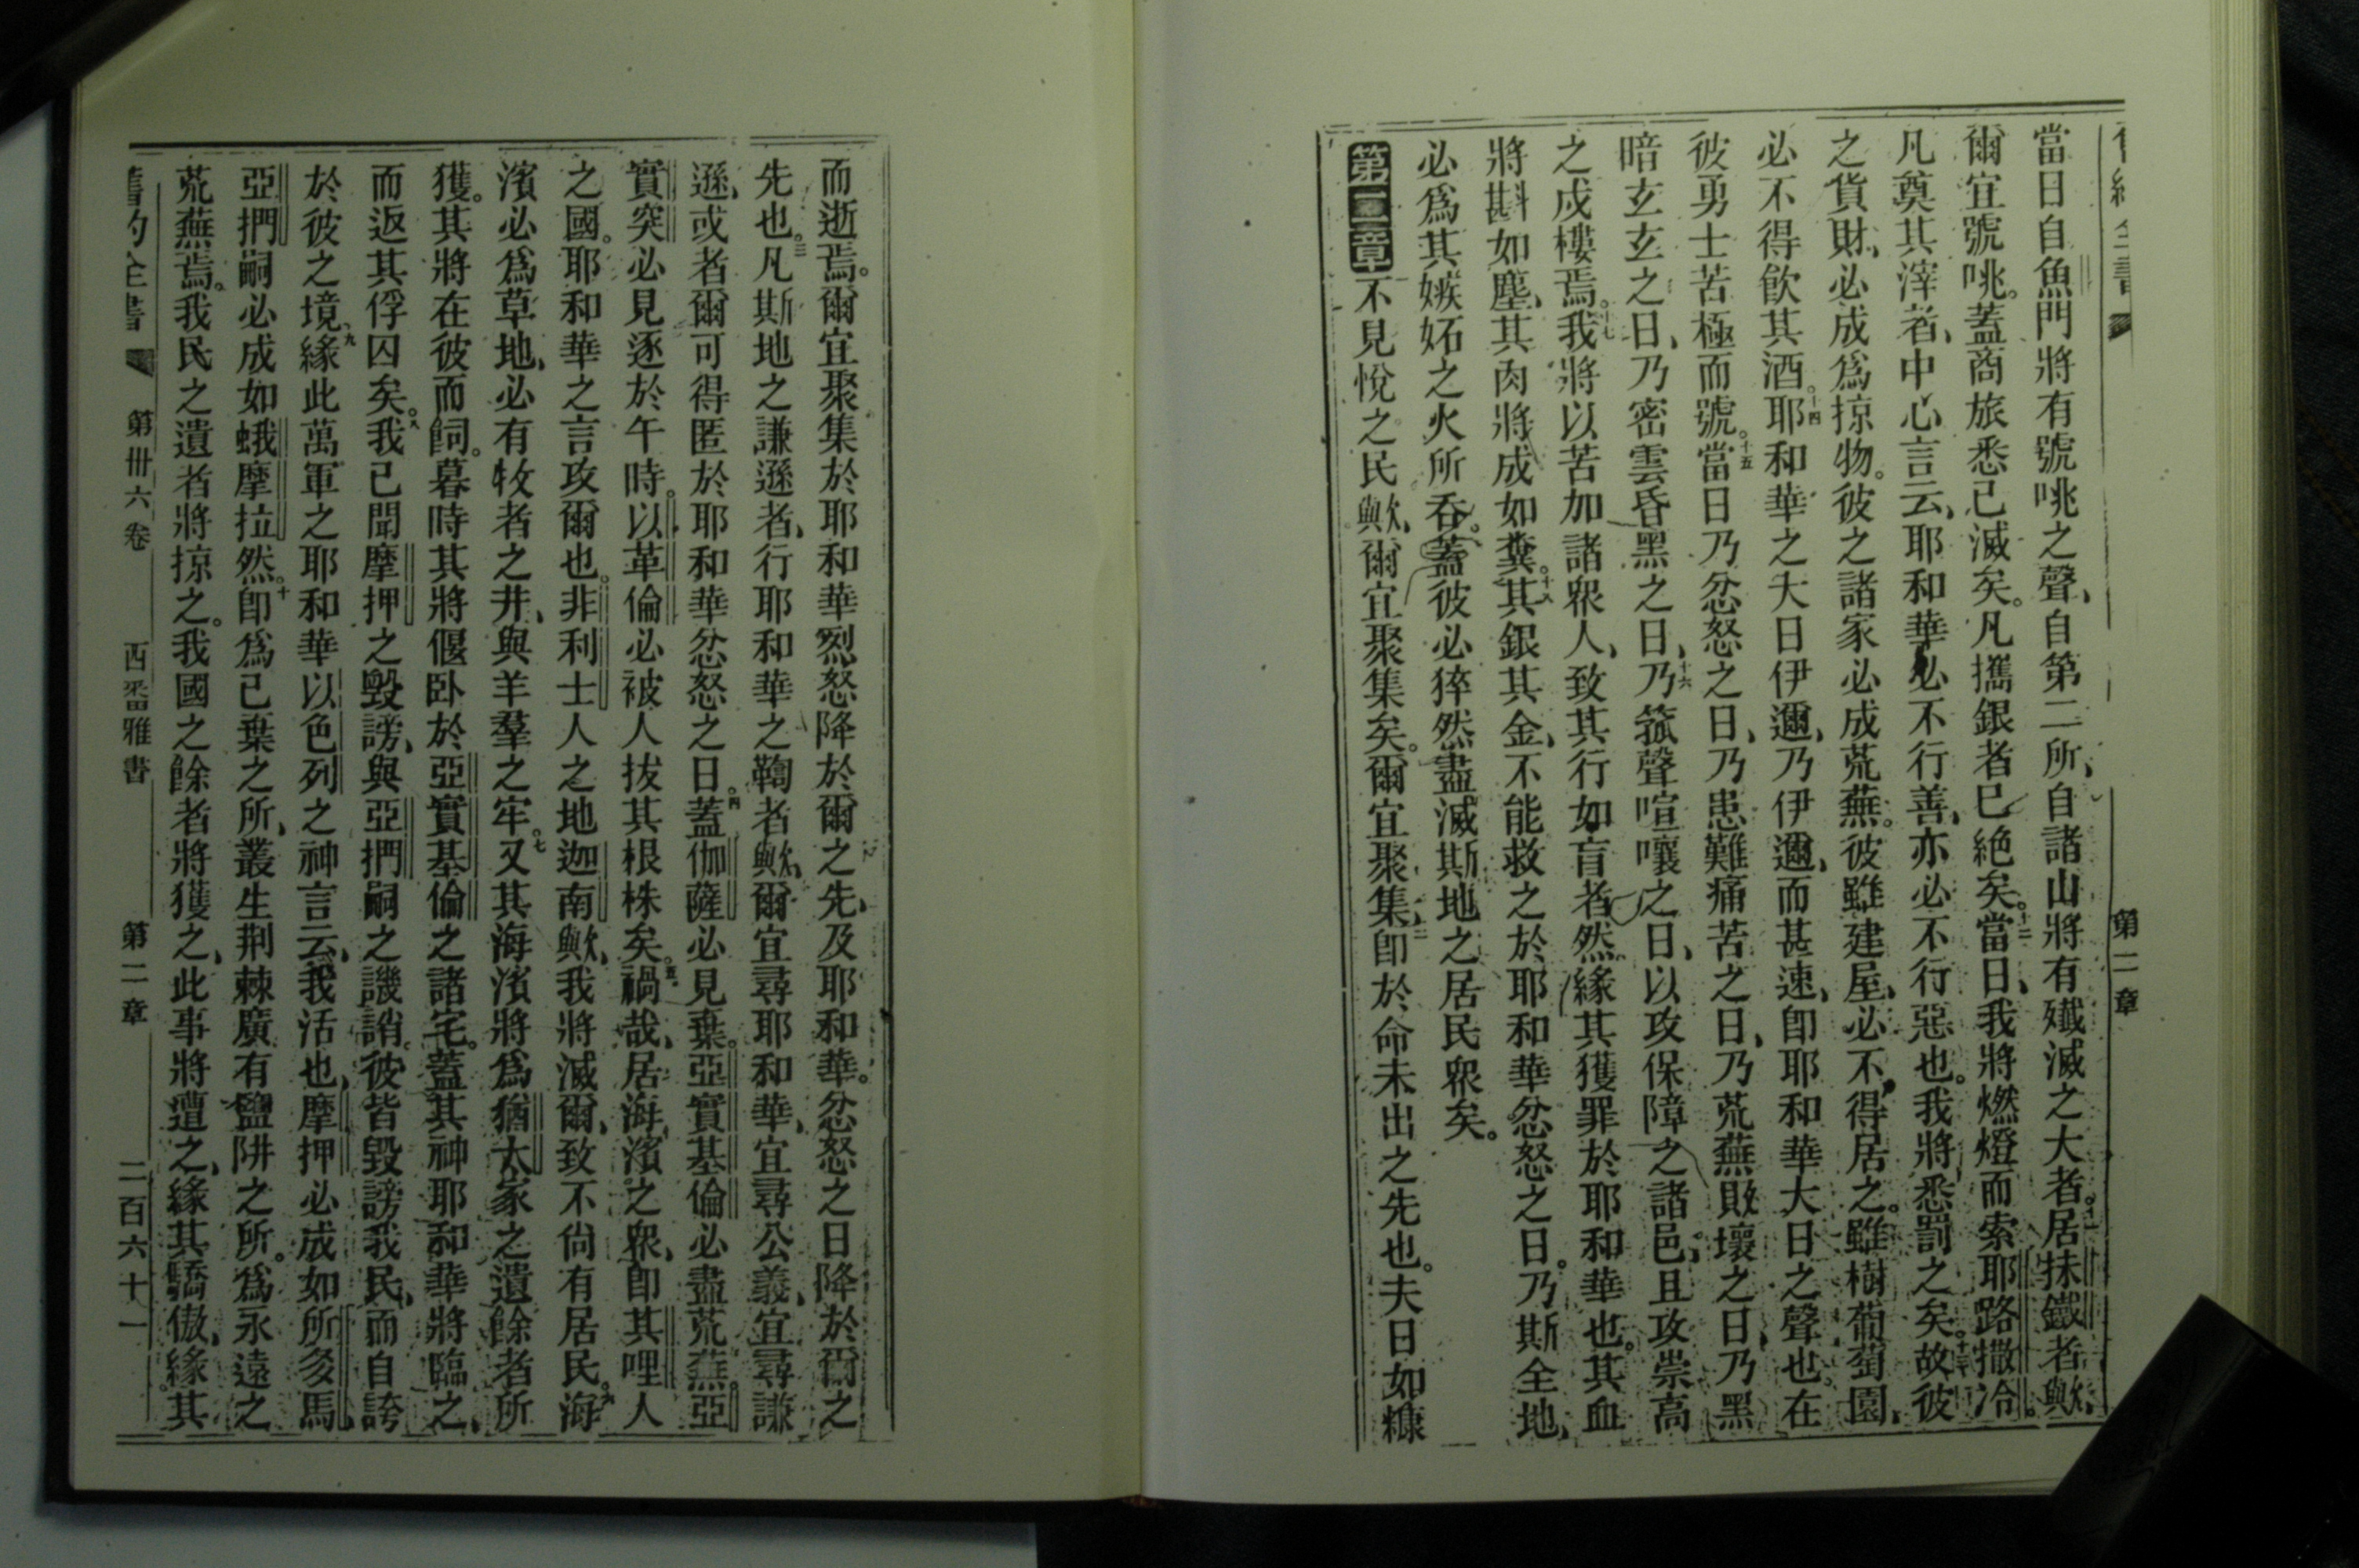 第二章
當日自魚門將有號咷之聲、自第二所、自諸山將有殲滅之大者。十一居抹鐵者歟、
爾宜號咷。蓋商旅悉已滅矣。凡攜銀者已絕矣。十二當日、我將燃燈而索耶路撒冷。
凡奠其滓者、中心言云、耶和華必不行善、亦必不行惡也。我將悉罰之矣。十三故彼
之貨財、必成爲掠物。彼之諸家必成荒蕪。彼雖建屋、必不得居之。雖樹葡萄園、
必不得飲其酒。十四耶和華之大日伊邇、乃伊邇、而甚速、即耶和華大日之聲也。在
彼勇士苦極而號。十五當日乃忿怒之日、乃患難痛苦之日、乃荒蕪敗壞之日、乃黑
暗玄玄之日、乃密雲昏黑之日、十六乃箛聲喧嚷之日、以攻保障之諸邑、且攻崇高
之戍樓焉。十七我將以苦加諸衆人、致其行如盲者然。緣其獲罪於耶和華也。其血
將斟如塵、其肉將成如糞。十八其銀其金、不能救之於耶和華忿怒之日。乃斯全地、
必爲其嫉妬之火所吞。蓋彼必猝然盡滅斯地之居民衆矣。
第三章 不見悅之民歟、爾宜聚集矣。爾宜聚集、二即於命未出之先也。夫日如糠
而逝焉。爾宜聚集於耶和華烈怒降於爾之先、及耶和華忿怒之日降於爾之
先也。三凡斯地之謙遜者、行耶和華之鞫者歟、爾宜尋耶和華、宜尋公義、宜尋謙
遜、或者爾可得匿於耶和華忿怒之日。四蓋伽薩必見棄。亞實基倫必盡荒蕪。亞
實突必見逐於午時。以革倫必被人拔其根株矣。五禍哉、居海濱之衆、即其哩人
之國。耶和華之言攻爾也。非利士人之地迦南歟、我將滅爾、致不尙有居民。六海
濱必爲草地、必有牧者之井、與羊羣之牢。七又其海濱將爲猶大家之遺餘者所
獲。其將在彼而飼。暮時其將偃卧於亞實基倫之諸宅。蓋其神耶和華將臨之、
而返其俘囚矣。八我已聞摩押之毀謗、與亞捫嗣之譏誚。彼皆毀謗我民、而自誇
於彼之境、九緣此萬軍之耶和華以色列之神言云、我活也、摩押必成如所多馬、
亞捫嗣必成如蛾摩拉然。十即爲已棄之所、叢生荆棘廣有鹽阱之所。爲永遠之
荒蕪焉。我民之遺者將掠之。我國之餘者將獲之、此事將遭之、緣其驕傲、緣其
舊約全書 第卅六卷 西番雅書 第二章 二百六十一